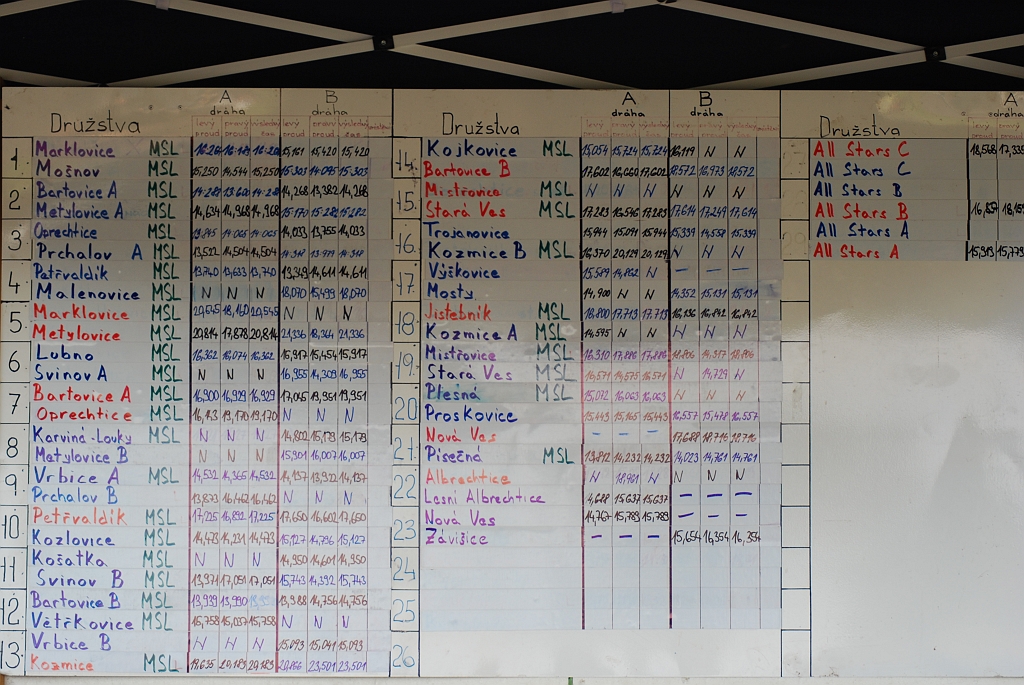 A B
dráha dráha
Družstva levý proud pravý proud výsledný čas levý proud pravý proud výsledný čas
1 Marklovice MSL 15,161 15,420 15,420
Mošnov MSL 15,250 14,544 15,250 15,303 14,095 15,303
2 Bartovice A MSL 14,268 13,382 14,268
Metylovice A MSL 14,634 14,968 14,968 15,170 15,282 15,282
3 Oprechtice MSL 13,845 14,065 14,065 14,033 13,755 14,033
Prchalov A MSL 13,522 14,504 14,504
4 Petřvaldík MSL 13,740 13,633 13,740 13,349 14,611 14,611
Malenovice MSL N N N 18,070 15,499 18,070
5 Marklovice MSL 20,545 18,160 20,545 N N N
Metylovice MSL 20,814 17,878 20,814 21,336 18,364 21,336
6 Lubno MSL 16,362 16,074 16,362 15,917 15,454 15,917
Svinov A MSL N N N 16,955 14,309 16,955
7 Bartovice A MSL 16,900 16,929 16,929 17,045 19,951 19,951
Oprechtice MSL 19,170 19,170 N N N
8 Karviná-Louky MSL N N N 14,802 15,179 15,179
Matylovice B N N N 15,901 16,007 16,007
9 Vrbice A MSL 14,532 14,365 14,532 14,137 13,922 14,137
Prchalov B 13,873 16,462 16,462 N N N
10 Petřvaldík MSL 17,225 16,892 17,225 17,650 16,602 17,650
Kozlovice MSL 14,473 14,231 14,473 15,127 14,796 15,127
11 Košatka MSL N N N 14,950 14,601 14,950
Svinov B MSL 13,971 17,051 17,051 15,743 14,392 15,743
12 Bartovice B MSL 13,939 13,990 13,988 14,756 14,756
Větřkovice MSL 15,758 15,037 15,758 N N N
13 Vrbice B N N N 15,093 15,041 15,093
Kozmice MSL 19,635 20,183 20,183 23,501 23,501
A B
dráha dráha
Družstva levý proud pravý proud výsledný čas levý proud pravý proud výsledný čas
14 Kojkovice MSL 15,054 15,724 15,724 16,119 N N
Bartovice B 17,602 16,660 17,602 18,572 16,973 18,572
15 Mistřovice MSL N N N N N N
Stará Ves MSL 17,283 16,546 17,283 17,614 17,249 17,614
16 Trojanovice 15,944 15,091 15,944 15,339 14,558 15,339
Kozmice B MSL 16,370 20,129 20,129 N N N
17 Výškovice 15,589 14,882 N – – –
Mosty 14,900 N N 14,352 15,131 15,131
18 Jistebník MSL 18,800 17,713 16,136 16,842 16,842
Kozmice A MSL 14,575 N N N N N
19 Mistřovice MSL 16,310 17,886 17,886 18,806 14,317 18,806
Stará Ves MSL 16,571 14,575 16,571 N 14,729 N
20 Plesná MSL 15,072 16,063 16,063 N N N
Proskovice 15,443 15,165 15,443 16,557 15,478 16,557
21 Nová Ves – – – 17,688 18,716 18,716
Písečná MSL 13,812 14,232 14,232 14,023 14,761 14,761
22 Albrechtice N 18,961 N N N N
Lesní Albrechtice 14,688 15,637 15,637 – – –
23 Nová Ves 14,767 15,789 15,789 – – –
Závišice – – – 15,654 16,354 16,354
24
25
26
A
Družstva levý proud
All Stars C 18,568 17,335
All Stars C
All Stars B
All Stars B 16,857
All Stars A
All Stars A 15,313 15,773